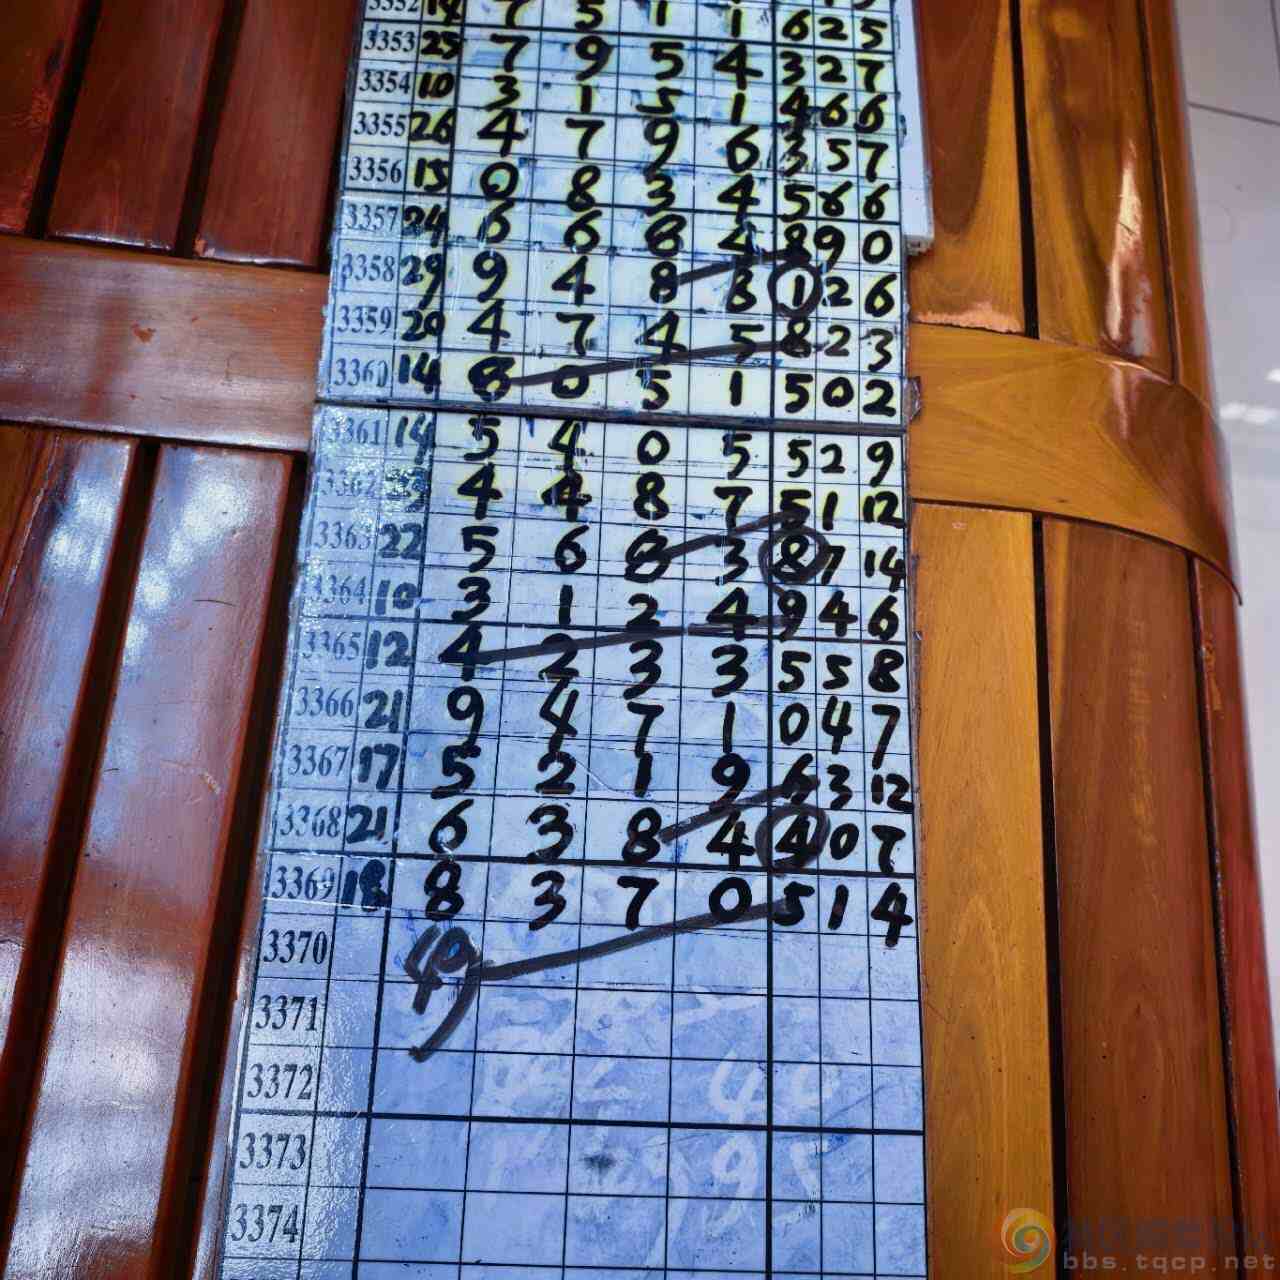 3352 14 7 5 1 1 6 2 5
3353 25 7 9 5 4 3 2 7
3354 10 3 1 5 1 4 6 6
3355 26 4 7 9 6 3 5 7
3356 15 0 8 3 4 5 6 6
3357 24 6 6 8 4 8 9 0
3358 29 9 4 8 8 1 2 6
3359 20 4 7 4 5 8 2 3
3360 14 8 0 5 1 5 0 2
3361 14 5 4 0 5 5 2 9
3362 23 4 4 8 7 5 1 12
3363 22 5 6 8 3 8 7 14
3364 10 3 1 2 4 9 4 6
3365 12 4 2 3 3 5 5 8
3366 21 9 4 7 1 0 4 7
3367 17 5 2 1 9 6 3 12
3368 21 6 3 8 4 4 0 7
3369 18 8 3 7 0 5 1 4
3370 49
3371
3372
3373
3374
bbs.tqcp.net